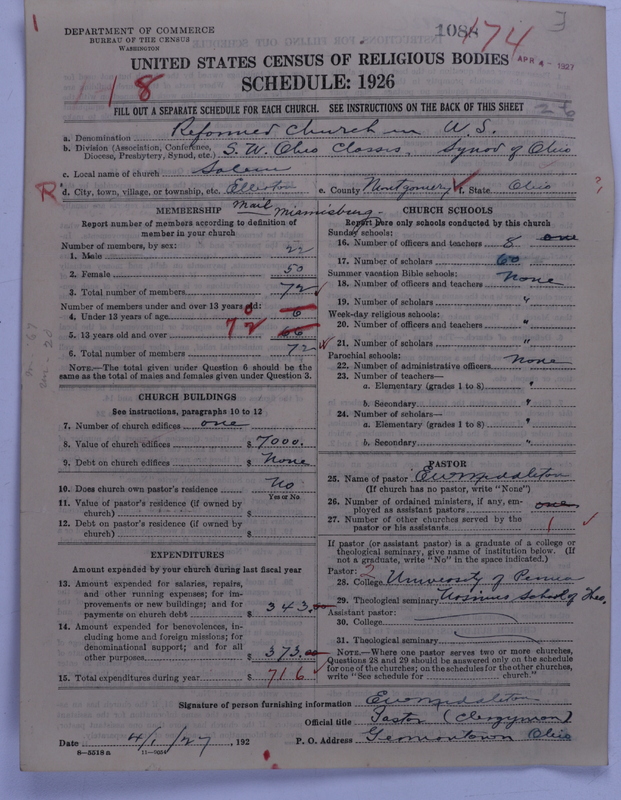 DEPARTMENT OF COMMERCE
BUREAU OF THE CENSUS
WASHINGTON
1088
174
APR 4 - 1927
UNITED STATES CENSUS OF RELIGIOUS BODIES
SCHEDULE: 1926
118
FILL OUT A SEPARATE SCHEDULE FOR EACH CHURCH. SEE INSTRUCTIONS ON THE BACK OF THIS SHEET
a. Denomination Reformed Church in U.S.
b. Division (Association, Conference, Diocese, Presbytery, Synod, etc.) S.W. Ohio Classis, Synod of Ohio
c. Local name of church Salem
R d. City, town, village, or township, etc. Ellerton e. County Montgomery f. State Ohio
Mail Miamisburg
MEMBERSHIP
Report number of members according to definition of
member in your church
Number of members, by sex:
1. Male 22
2. Female 50
3. Total number of members 72
Number of members under and over 13 years old:
4. Under 13 years of age 6 0
5. 13 years old and over 66 72
6. Total number of members 72
NOTE.—The total given under Question 6 should be the
same as the total of males and females given under Question 3.
CHURCH BUILDINGS
See instructions, paragraphs 10 to 12
7. Number of church edifices one
8. Value of church edifices $ 7000.
9. Debt on church edifices $ None
10. Does church own pastor's residence No
Yes or No
11. Value of pastor's residence (if owned by
church) $
12. Debt on pastor's residence (if owned by
church) $
EXPENDITURES
Amount expended by your church during last fiscal year
13. Amount expended for salaries, repairs,
and other running expenses; for im-
provements or new buildings; and for
payments on church debt $ 343.00
14. Amount expended for benevolences, in-
cluding home and foreign missions; for
denominational support; and for all
other purposes $ 373.00
15. Total expenditures during year $ 716.
CHURCH SCHOOLS
Report here only schools conducted by this church
Sunday schools:
16. Number of officers and teachers 8 one
17. Number of scholars 60
Summer vacation Bible schools:
18. Number of officers and teachers None
19. Number of scholars "
Week-day religious schools:
20. Number of officers and teachers "
21. Number of scholars "
Parochial schools:
22. Number of administrative officers None
23. Number of teachers—
a. Elementary (grades 1 to 8) "
b. Secondary "
24. Number of scholars—
a. Elementary (grades 1 to 8) "
b. Secondary "
PASTOR
25. Name of pastor E W Middleton
(If church has no pastor, write "None")
26. Number of ordained ministers, if any, em-
ployed as assistant pastors one
27. Number of other churches served by the
pastor or his assistants 1
If pastor (or assistant pastor) is a graduate of a college or
theological seminary, give name of institution below. (If
not a graduate, write "No" in the space indicated.)
Pastor: 2
28. College University of Penna
29. Theological seminary Ursinus School of Theo.
Assistant pastor:
30. College
31. Theological seminary
NOTE.—Where one pastor serves two or more churches,
Questions 28 and 29 should be answered only on the schedule
for one of the churches; on the schedules for the other churches,
write "See schedule for church."
Signature of person furnishing information E W Middleton
Official title Pastor (Clergyman)
Date 4/1/27, 192 P. O. Address Germantown Ohio
8—5518a 11—9054